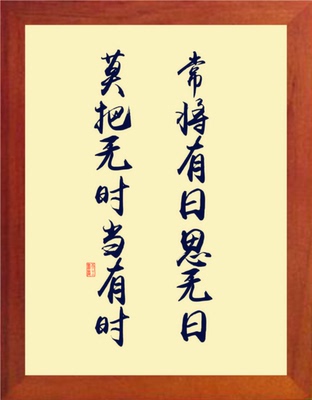 常将有日思无日
莫把无时当有时